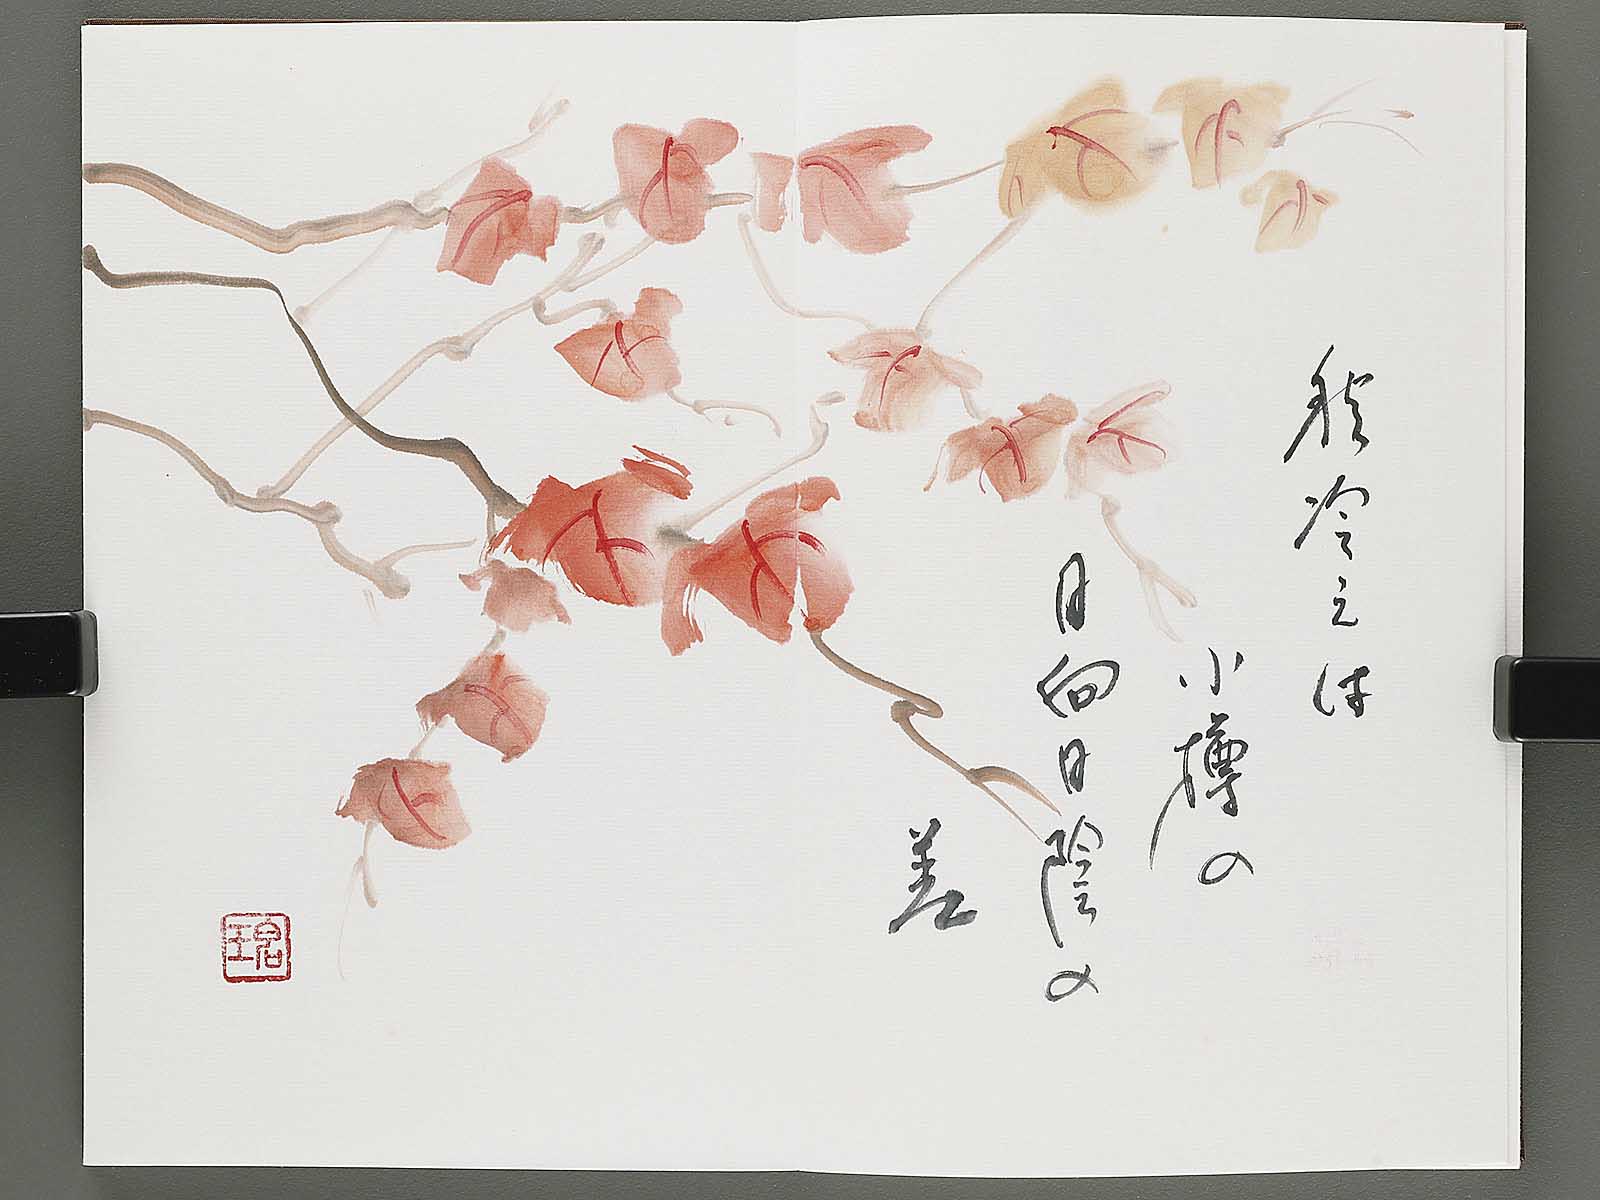 秋冷えは
小樽の
日向日陰の
差